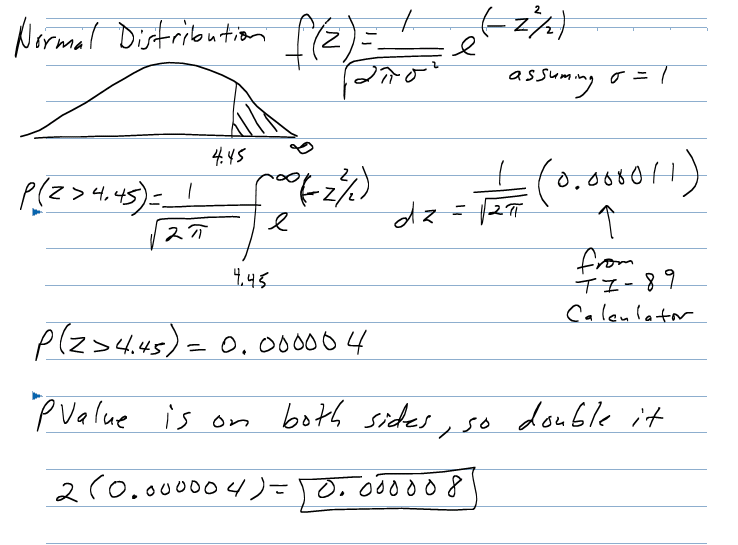 Normal Distribution f(z) = 1/√(2πσ²) e^(-z²/2)
assuming σ = 1
4.45 ∞
P(Z > 4.45) = 1/√(2π) ∫_4.45^∞ e^(-z²/2) dz = 1/√(2π) (0.000011)
↑
from
TI-89
Calculator
P(Z > 4.45) = 0.000004
PValue is on both sides, so double it
2(0.000004) = 0.000008